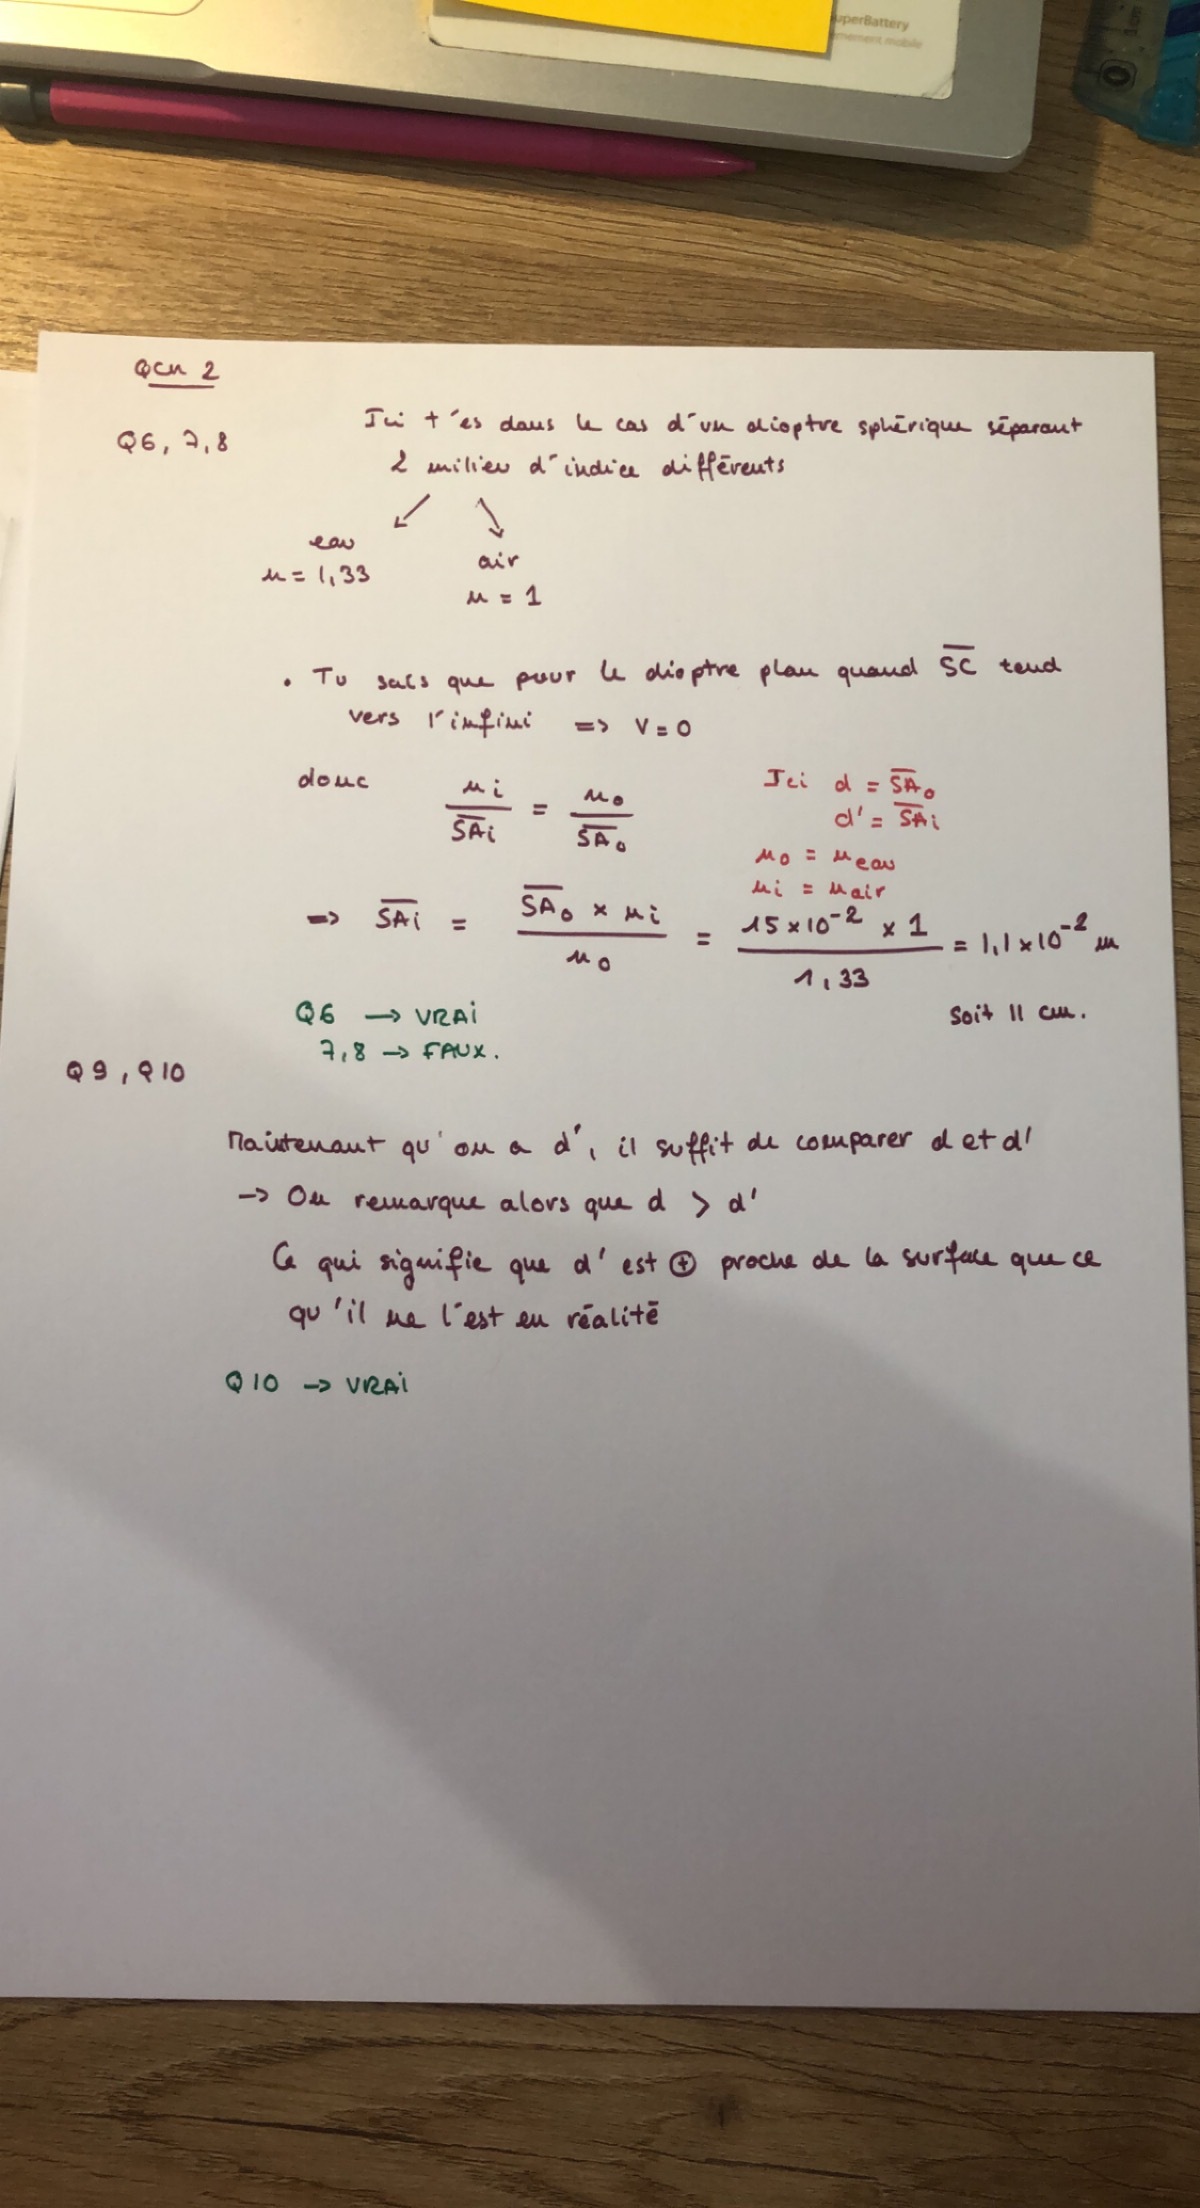 uperBattery
nement mobile
0
QCM 2
Q6, 7, 8
Ici t'es dans le cas d'un dioptre sphérique séparant
2 milieu d'indice différents
eau
n = 1,33
air
n = 1
• Tu sais que pour le dioptre plan quand SC tend
vers l'infini => V = 0
donc ni / SAi = no / SAo
Ici d = SAo
d' = SAi
no = neau
ni = nair
=> SAi = SAo × ni / no = 15×10⁻² × 1 / 1,33 = 1,1×10⁻² m
soit 11 cm.
Q6 → VRAI
7,8 → FAUX.
Q9, Q10
Maintenant qu'on a d', il suffit de comparer d et d'
→ On remarque alors que d > d'
Ce qui signifie que d' est ⊕ proche de la surface que ce
qu'il ne l'est en réalité
Q10 → VRAI